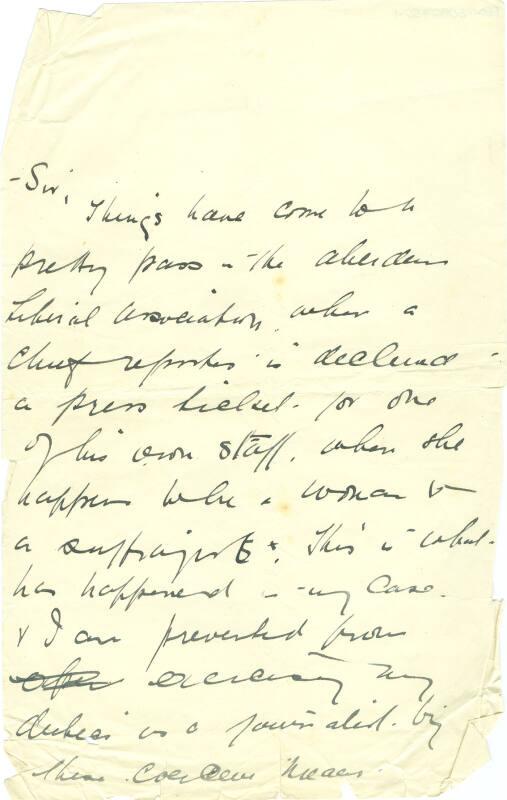 - Sir,
Things have come to a
pretty pass in the Aberdeen
Liberal Association, when a
chief reporter is declined
a press ticket for one
of his own staff, when she
happens to be a woman &
a suffragist. This is what
has happened in my case.
& I am prevented from
exercising my
duties as a journalist by
these coercive means.